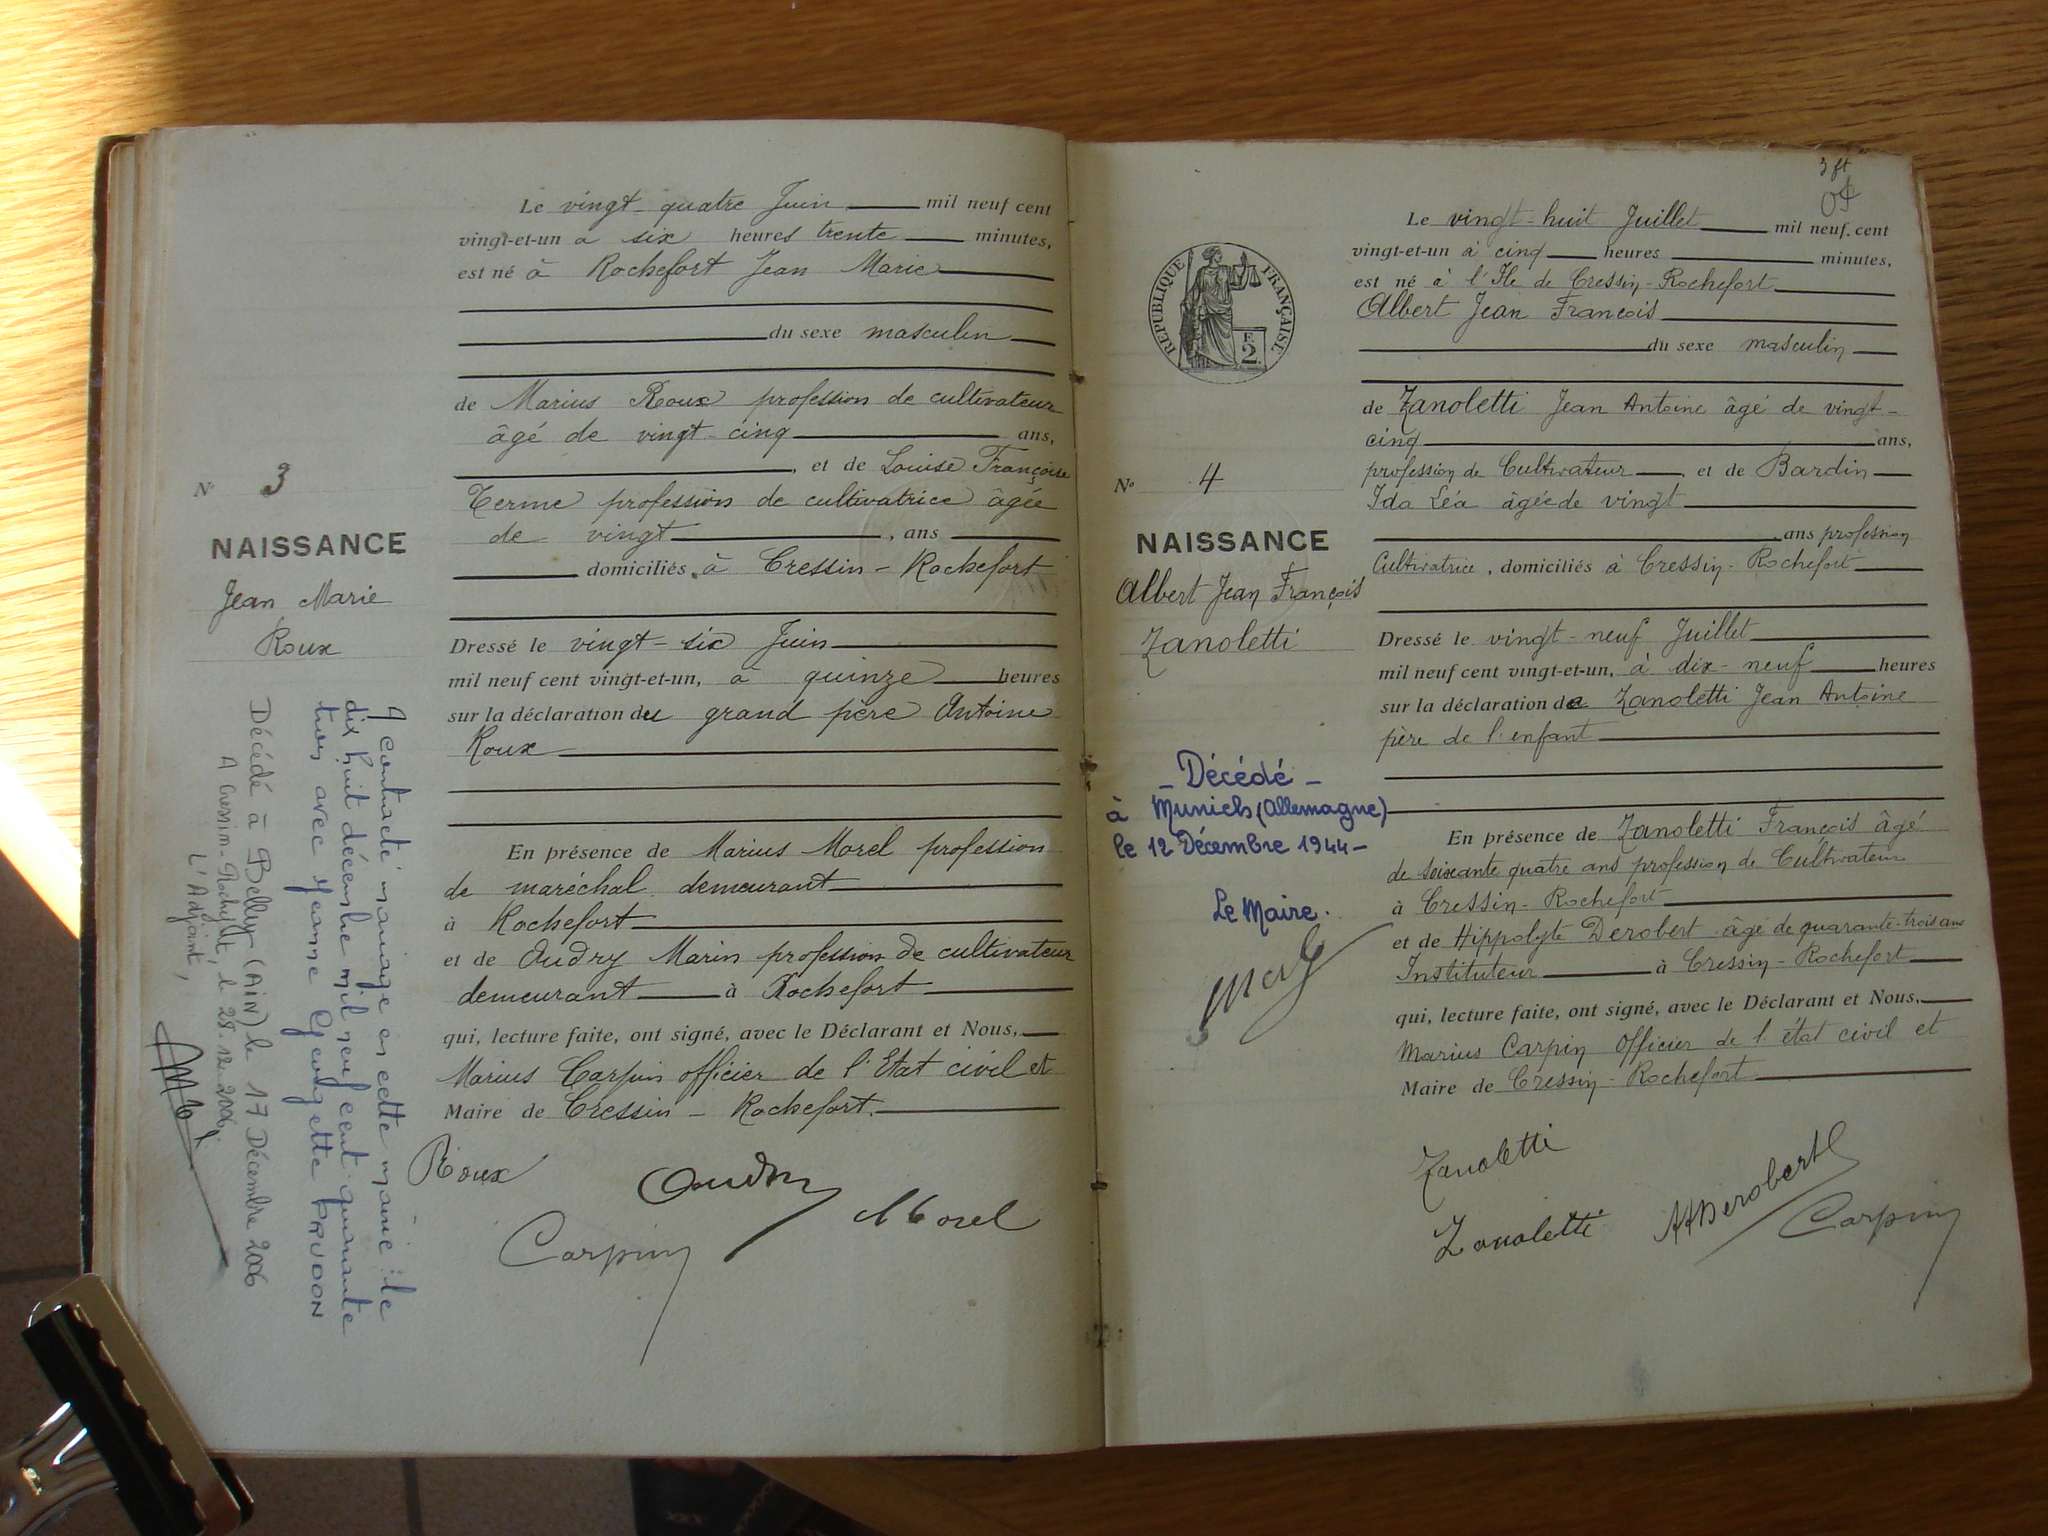 Le vingt-quatre Juin mil neuf cent
vingt-et-un à six heures trente minutes,
est né à Rochefort Jean Marie
du sexe masculin
de Marius Roux profession de cultivateur
âgé de vingt-cinq ans,
, et de Louise Françoise
Terme profession de cultivatrice âgée
de vingt , ans
domiciliés à Cressin-Rochefort
Dressé le vingt-six Juin
mil neuf cent vingt-et-un, à quinze heures
sur la déclaration du grand père Antoine
Roux
En présence de Marius Morel profession
de maréchal demeurant
à Rochefort
et de Oudry Marin profession de cultivateur
demeurant à Rochefort
qui, lecture faite, ont signé, avec le Déclarant et Nous,
Marius Carpin officier de l'Etat civil et
Maire de Cressin-Rochefort.
Roux
Oudry
Morel
Carpin
No 3
NAISSANCE
Jean Marie
Roux
A contracté mariage en cette mairie : le
dix huit décembre mil neuf cent quarante
trois avec Jeanne Georgette
Décédé à Belley (Ain) le 17 Décembre 2006
A Cressin-Rochefort, le 28.12.2006.
L'Adjoint,
3 ft
Le vingt-huit Juillet mil neuf cent
vingt-et-un à cinq heures minutes,
est né à l'Ile de Cressin-Rochefort
Albert Jean François
du sexe masculin
de Zanoletti Jean Antoine âgé de vingt-
cinq ans,
profession de Cultivateur , et de Bardin
Ida Léa âgée de vingt
ans profession
Cultivatrice, domiciliés à Cressin-Rochefort
Dressé le vingt-neuf Juillet
mil neuf cent vingt-et-un, à dix-neuf heures
sur la déclaration de Zanoletti Jean Antoine
père de l'enfant
En présence de Zanoletti François âgé
de soixante quatre ans profession de Cultivateur
à Cressin-Rochefort
et de Hippolyte Derobert âgé de quarante-trois ans
Instituteur à Cressin-Rochefort
qui, lecture faite, ont signé, avec le Déclarant et Nous,
Marius Carpin Officier de l'état civil et
Maire de Cressin-Rochefort
Zanoletti
Zanoletti
HDerobert
Carpin
RÉPUBLIQUE FRANÇAISE
F.
2
No 4
NAISSANCE
Albert Jean François
Zanoletti
- Décédé -
à Munich (Allemagne)
le 12 Décembre 1944-
Le Maire.